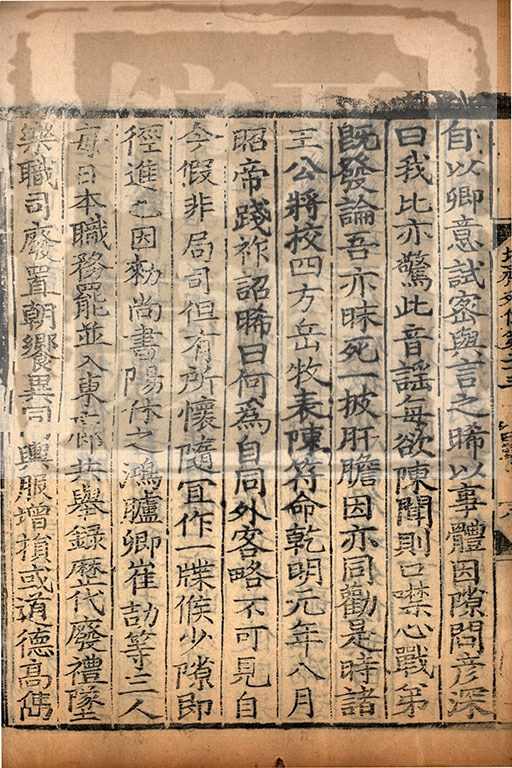 自以卿意試密與言之晞以事體因隙問彦深
曰我比亦驚此音謡每欲陳聞則口噤心戰弟
既發論吾亦昧死一披肝膽因亦同勸是時諸
王公將校四方岳牧表陳符命乾明元年八月
昭帝踐祚詔晞曰何為自同外客略不可見自
今假非局司但有所懷隨宜作一牒候少隙即
徑進也因勑尚書陽休之鴻臚卿崔劼等三人
每日本職務罷並入東廊共舉錄歷代廢禮墜
樂職司廢置朝饗異同輿服增損或道德高儁